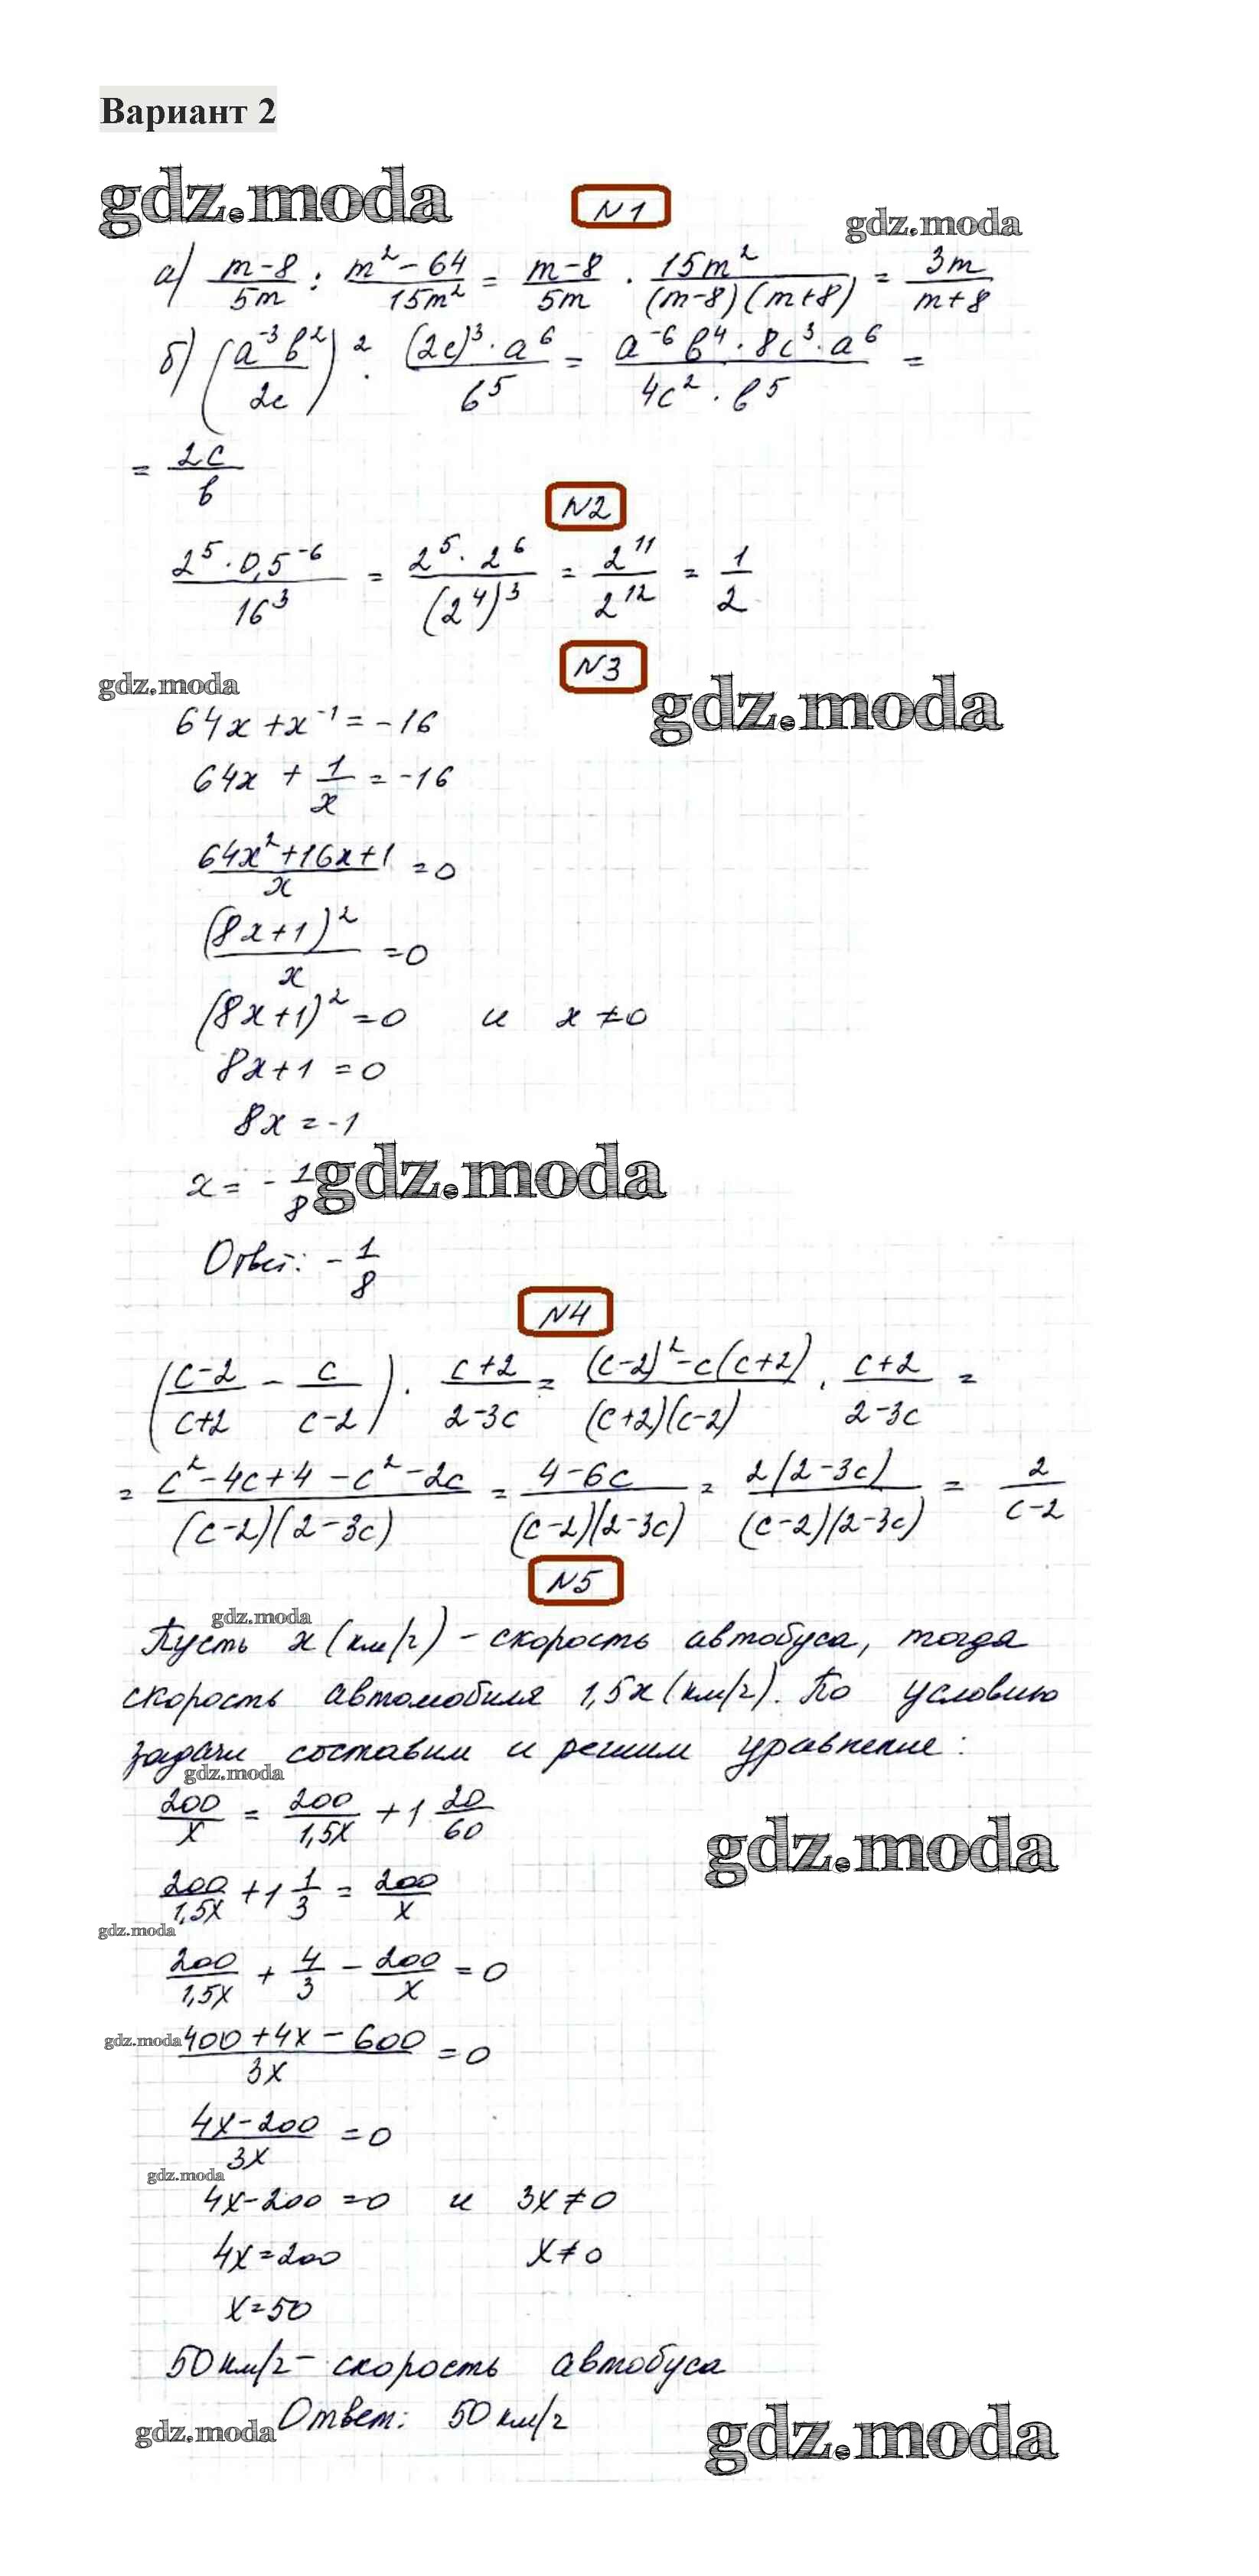 Вариант 2
gdz.moda
N1
gdz.moda
а) (m-8)/(5m) : (m²-64)/(15m²) = (m-8)/(5m) · (15m²)/((m-8)(m+8)) = (3m)/(m+8)
б) ((a⁻³b²)/(2c))² · ((2c)³·a⁶)/(b⁵) = (a⁻⁶b⁴·8c³·a⁶)/(4c²·b⁵) =
= (2c)/b
N2
(2⁵·0,5⁻⁶)/(16³) = (2⁵·2⁶)/((2⁴)³) = 2¹¹/2¹² = 1/2
N3
gdz.moda
gdz.moda
64x+x⁻¹=-16
64x + 1/x = -16
(64x²+16x+1)/x =0
((8x+1)²)/x =0
(8x+1)²=0 и x≠0
8x+1 =0
8x=-1
x= - 1/8
gdz.moda
Ответ: - 1/8
N4
((c-2)/(c+2) - c/(c-2)) · (c+2)/(2-3c) = ((c-2)²-c(c+2))/((c+2)(c-2)) · (c+2)/(2-3c) =
= (c²-4c+4-c²-2c)/((c-2)(2-3c)) = (4-6c)/((c-2)(2-3c)) = (2(2-3c))/((c-2)(2-3c)) = 2/(c-2)
N5
gdz.moda
Пусть x(км/ч)-скорость автобуса, тогда
скорость автомобиля 1,5x(км/ч). По условию
задачи составим и решим уравнение:
gdz.moda
200/x = 200/1,5x + 1 20/60
gdz.moda
200/1,5x + 1 1/3 = 200/x
gdz.moda
200/1,5x + 4/3 - 200/x = 0
gdz.moda
(400+4x-600)/3x =0
(4x-200)/3x =0
gdz.moda
4x-200=0 и 3x≠0
4x=200 x≠0
x=50
50км/ч- скорость автобуса
gdz.moda
Ответ: 50км/ч
gdz.moda